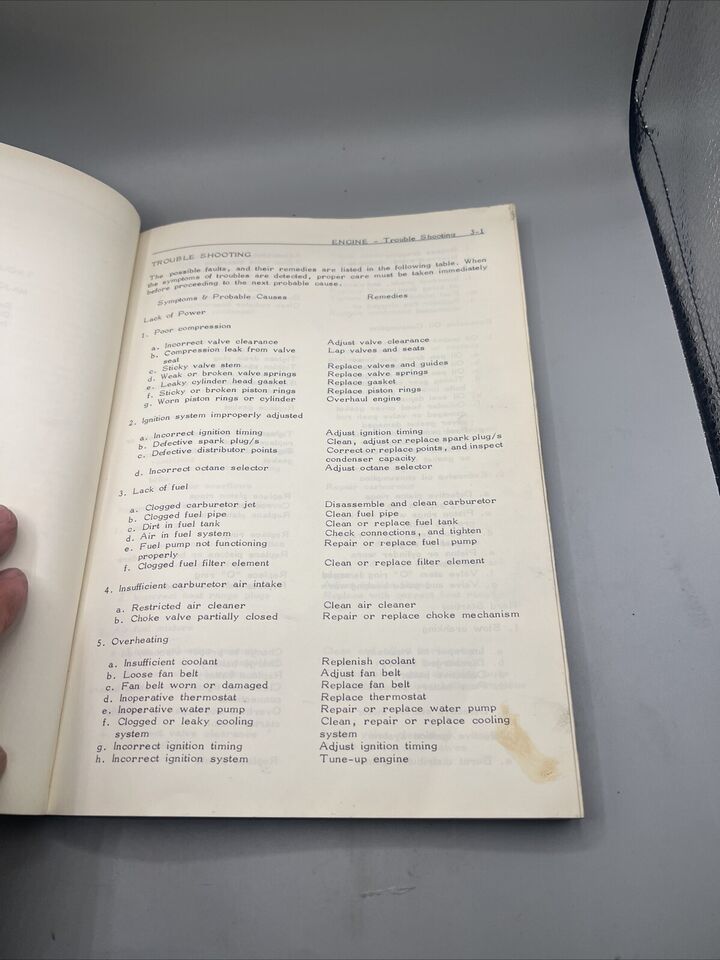 ENGINE - Trouble Shooting 3-1
TROUBLE SHOOTING
The possible faults, and their remedies are listed in the following table. When
the symptoms of troubles are detected, proper care must be taken immediately
before proceeding to the next probable cause.
Symptoms & Probable Causes Remedies
Lack of Power
1. Poor compression
a. Incorrect valve clearance Adjust valve clearance
b. Compression leak from valve Lap valves and seats
seat
c. Sticky valve stem Replace valves and guides
d. Weak or broken valve springs Replace valve springs
e. Leaky cylinder head gasket Replace gasket
f. Sticky or broken piston rings Replace piston rings
g. Worn piston rings or cylinder Overhaul engine
2. Ignition system improperly adjusted
a. Incorrect ignition timing Adjust ignition timing
b. Defective spark plug/s Clean, adjust or replace spark plug/s
c. Defective distributor points Correct or replace points, and inspect
condenser capacity
d. Incorrect octane selector Adjust octane selector
3. Lack of fuel
a. Clogged carburetor jet Disassemble and clean carburetor
b. Clogged fuel pipe Clean fuel pipe
c. Dirt in fuel tank Clean or replace fuel tank
d. Air in fuel system Check connections, and tighten
e. Fuel pump not functioning Repair or replace fuel pump
properly
f. Clogged fuel filter element Clean or replace filter element
4. Insufficient carburetor air intake
a. Restricted air cleaner Clean air cleaner
b. Choke valve partially closed Repair or replace choke mechanism
5. Overheating
a. Insufficient coolant Replenish coolant
b. Loose fan belt Adjust fan belt
c. Fan belt worn or damaged Replace fan belt
d. Inoperative thermostat Replace thermostat
e. Inoperative water pump Repair or replace water pump
f. Clogged or leaky cooling Clean, repair or replace cooling
system system
g. Incorrect ignition timing Adjust ignition timing
h. Incorrect ignition system Tune-up engine